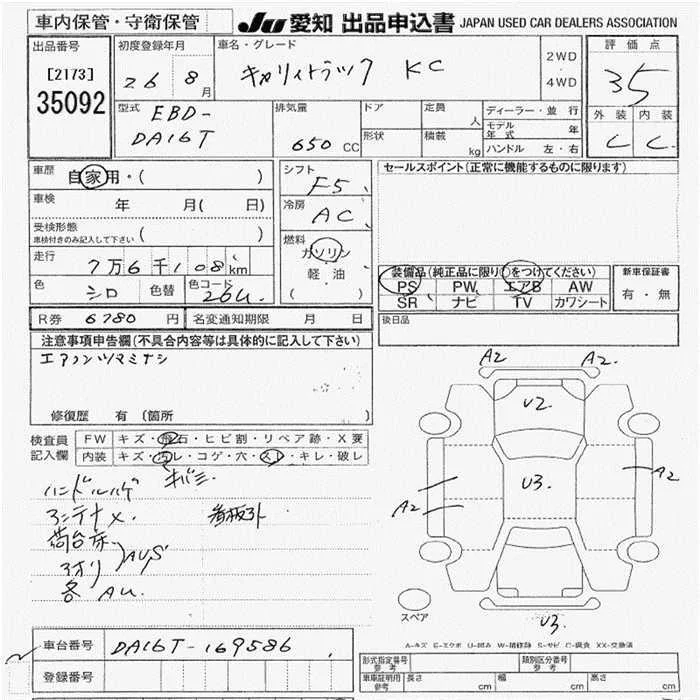 車内保管・守衛保管
JU 愛知 出品申込書 JAPAN USED CAR DEALERS ASSOCIATION
出品番号
[2173]
35092
初度登録年月
26 8月
車名・グレード
キャリイトラック KC
2WD
4WD
評価点
35
外装 内装
C C
型式
EBD-
DA16T
排気量
650 CC
ドア
形状
定員 人
積載 kg
ディーラー・並行
モデル年式 年
ハンドル 左・右
車歴 自家用・( )
車検 年 月( 日)
受検形態
車検付きのみ記入して下さい ( )
走行 7万6千108km
色 シロ 色替 色コード 26U
シフト F5
冷房 AC
燃料 ガソリン
軽・油
( )
セールスポイント(正常に機能するものに限ります)
装備品(純正品に限り○をつけてください)
PS PW エアB AW
SR ナビ TV カワシート
新車保証書
有・無
後日品
R券 6780円 名変通知期限 月 日
注意事項申告欄(不具合内容等は具体的に記入して下さい)
エアコンツマミナシ
修復歴 有(箇所 )
検査員記入欄
FW キズ・飛石・ヒビ割・リペア跡・X要
内装 キズ・汚レ・コゲ・穴・スレ・キレ・破レ
キバミ
ハンドルハゲ
アンテナ×. 看板外
荷台床
アオリ AUS
各 AU.
A2 A2.
U2
U3.
A2
A2
U3.
スペア
A-キズ E-エクボ U-凹み W-補修跡 S-サビ C-腐食 XX-交換済
車台番号 DA16T-169586
登録番号
型式指定番号 参考
類別区分番号 参考
車庫証明用 参考 長さ cm 幅 cm 高さ cm